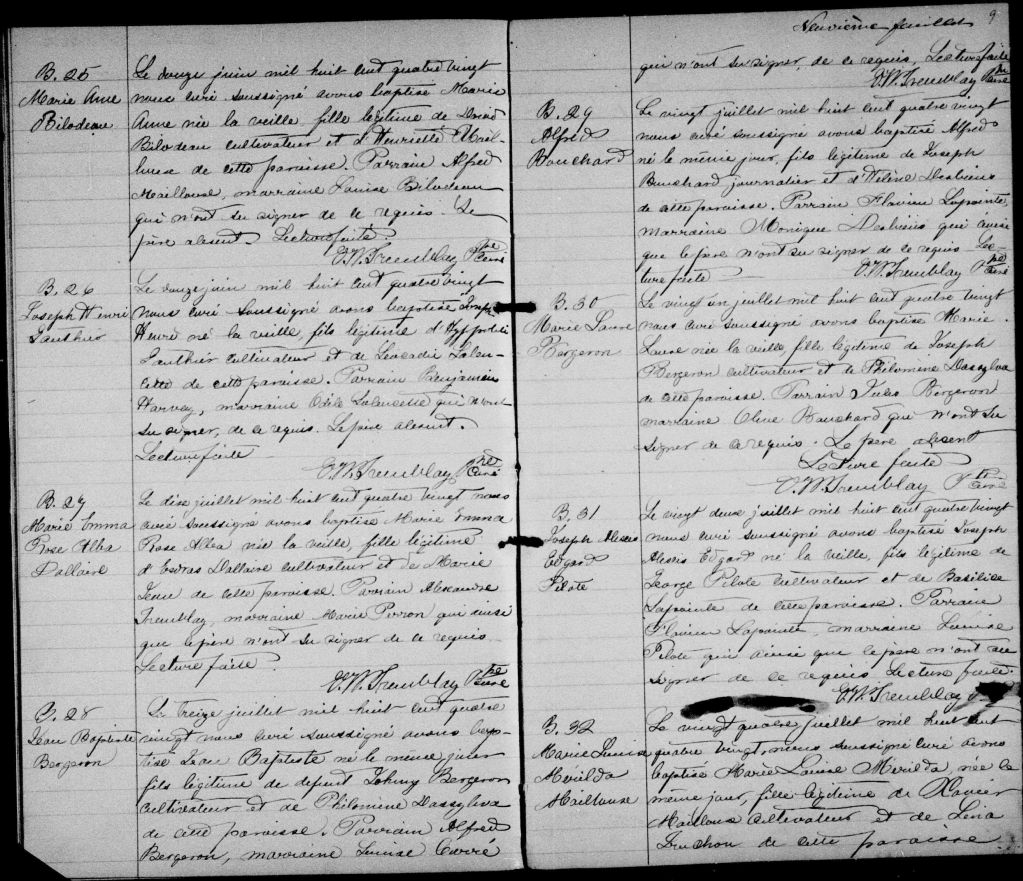 B. 25
Marie Anne
Bilodeau
Le douze juin mil huit cent quatre vingt
nous curé soussigné avons baptisé Marie
Anne née la veille, fille légitime de David
Bilodeau cultivateur et d'Henriette Mail-
louse de cette paroisse. Parrain Alfred
Maillouse, marraine Louise Bilodeau
qui n'ont su signer de ce requis. Le
père absent. Lecture faite
E. W. Tremblay Ptre Curé
B. 26
Joseph Henri
Gauthier
Le douze juin mil huit cent quatre vingt
nous curé soussigné avons baptisé Joseph
Henri né la veille, fils légitime d'Hyppolite
Gauthier cultivateur et de Léocadie Lalan-
cette de cette paroisse. Parrain Benjamin
Harvey, marraine Odile Lalancette qui n'ont
su signer, de ce requis. Le père absent.
Lecture faite
E. W. Tremblay Ptre Curé
B. 27
Marie Emma
Rose Alba
Dallaire
Le dix juillet mil huit cent quatre vingt nous
curé soussigné avons baptisé Marie Emma
Rose Alba née la veille, fille légitime
d'Esdras Dallaire cultivateur et de Marie
Jean de cette paroisse. Parrain Alexandre
Tremblay, marraine Marie Perron qui ainsi
que le père n'ont su signer de ce requis
Lecture faite.
E. W. Tremblay Ptre Curé
B. 28
Jean Baptiste
Bergeron
Le treize juillet mil huit cent quatre
vingt nous curé soussigné avons bap-
tisé Jean Baptiste né le même jour
fils légitime de defunt Johny Bergeron
cultivateur et de Philomène Dassylva
de cette paroisse. Parrain Alfred
Bergeron, marraine Louise Carré
Neuvième feuillet 9
qui n'ont su signer, de ce requis, Lecture faite
E. W. Tremblay Ptre Curé
B. 29
Alfred
Bouchard
Le vingt juillet mil huit cent quatre vingt
nous curé soussigné avons baptisé Alfred
né le même jour, fils légitime de Joseph
Bouchard journalier et d'Heline Desbiens
de cette paroisse. Parrain Flavien Lapointe,
marraine Monique Desbiens qui ainsi
que le père n'ont su signer de ce requis Lec-
ture faite E. W. Tremblay Ptre Curé
B. 30
Marie Laure
Bergeron
Le vingt un juillet mil huit cent quatre vingt
nous curé soussigné avons baptisé Marie
Laure née la veille, fille légitime de Joseph
Bergeron cultivateur et de Philomène Dassylva
de cette paroisse. Parrain Jules Bergeron
marraine Oline Bouchard qui n'ont su
signer de ce requis. Le père absent
Lecture faite
E. W. Tremblay Ptre Curé
B. 31
Joseph Alexis
Edgard
Pilote
Le vingt deux juillet mil huit cent quatre vingt
nous curé soussigné avons baptisé Joseph
Alexis Edgard né la veille, fils légitime de
George Pilote cultivateur et de Basilise
Lapointe de cette paroisse. Parrain
Flavien Lapointe, marraine Louise
Pilote qui ainsi que le père n'ont su
signer de ce requis Lecture faite
E. W. Tremblay
B. 32
Marie Louise
Mérilda
Maillouse
Le vingt quatre juillet mil huit cent
quatre vingt, nous soussigné curé avons
baptisé Marie Louise Mérilda née le
même jour, fille légitime de Xavier
Maillouse cultivateur et de Lina
Truchon de cette paroisse.